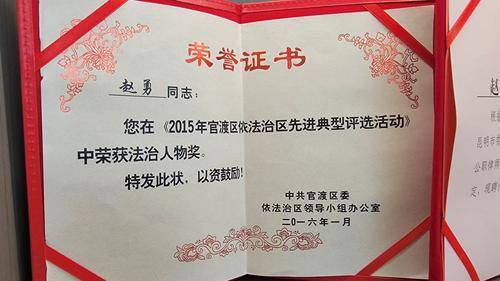 荣誉证书
赵勇同志：
您在《2015年官渡区依法治区先进典型评选活动》
中荣获法治人物奖。
特发此状，以资鼓励！
中共官渡区委
依法治区领导小组办公室
二〇一六年一月
赵
根据
昆明市
公职律师
定，现聘